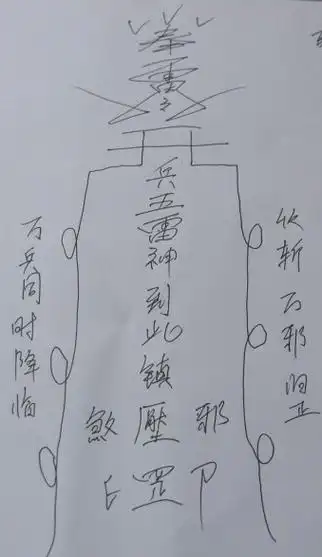 奉雷
兵五雷神到此鎮
煞壓邪
罡
斬万邪归正
万兵同时降临